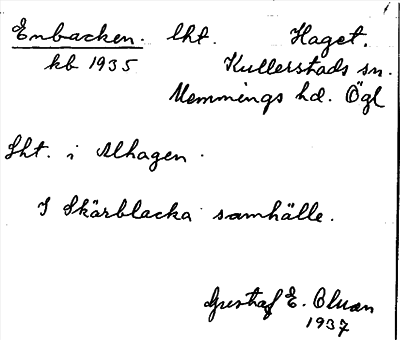 Enbacken. lht. Haget.
kb 1935 Kullerstads sn.
Memmings hd. Ögl
Lht. i Alhagen.
I Skärblacka samhälle.
Gustaf E. Olsson
1937